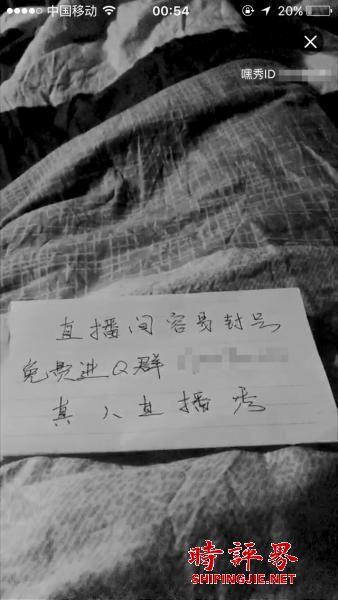 中国移动 00:54 20%
嘿秀ID
直播间容易封号
免费进Q群
真人直播秀
時評界
SHIPINGJIE.NET